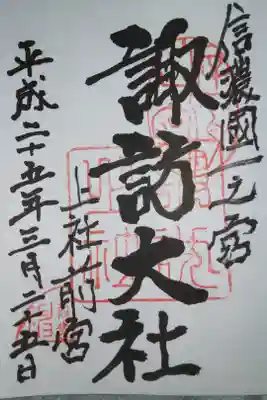 信濃國一之宮
諏訪大社
上社前宮
平成二十五年三月二十五日